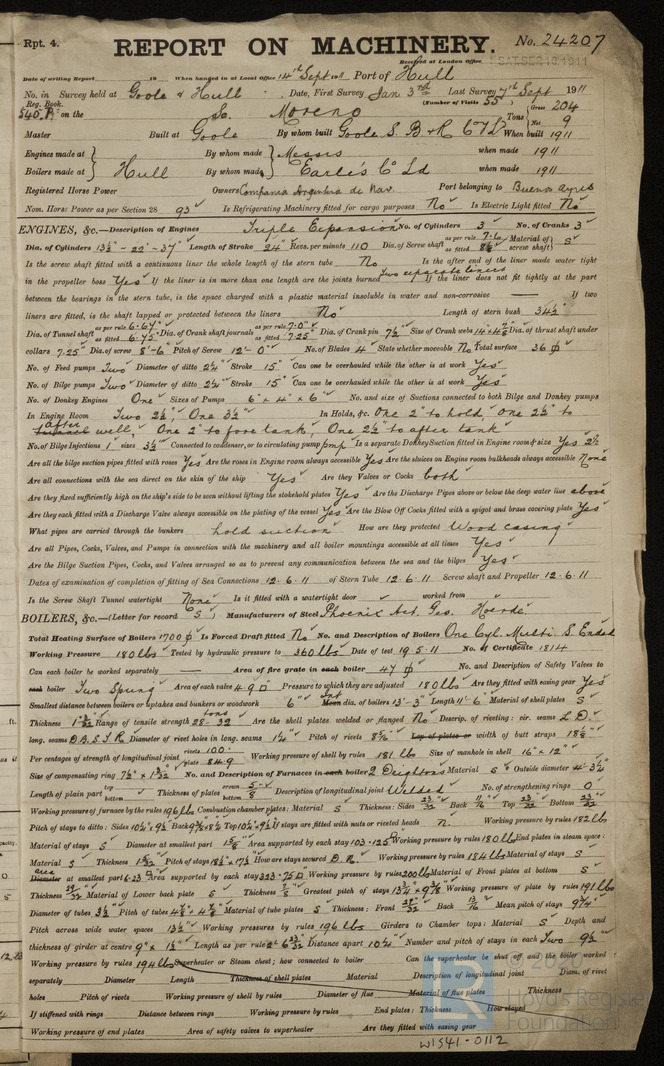 Rpt. 4. REPORT ON MACHINERY. No. 24207
Received at London Office SAT. SEP. 16 1911
Date of writing Report 19 When handed in at Local Office 14th Sept 1911 Port of Hull
No. in Survey held at Goole & Hull Date, First Survey Jan 3rd Last Survey 7th Sept 1911
Reg. Book. (Number of Visits 55)
540.P. on the Sc. Moreno Tons Gross 204 Net 9
Master Built at Goole By whom built Goole S. B & R Co Ld When built 1911
Engines made at By whom made Messrs when made 1911
Boilers made at Hull By whom made Earle's Co Ld when made 1911
Registered Horse Power Owners Compania Argentina de Nav. Port belonging to Buenos Ayres
Nom. Horse Power as per Section 28 93 Is Refrigerating Machinery fitted for cargo purposes No Is Electric Light fitted No
ENGINES, &c.—Description of Engines Triple Expansion No. of Cylinders 3 No. of Cranks 3
Dia. of Cylinders 13½" - 22" - 37" Length of Stroke 24" Revs. per minute 110 Dia. of Screw shaft as per rule 7.6 as fitted 8¼" Material of screw shaft S
Is the screw shaft fitted with a continuous liner the whole length of the stern tube No Is the after end of the liner made water tight
in the propeller boss Yes If the liner is in more than one length are the joints burned Two separate liners If the liner does not fit tightly at the part
between the bearings in the stern tube, is the space charged with a plastic material insoluble in water and non-corrosive — If two
liners are fitted, is the shaft lapped or protected between the liners No Length of stern bush 34½"
Dia. of Tunnel shaft as per rule 6.67" as fitted 6.75" Dia. of Crank shaft journals as per rule 7.0" as fitted 7.25" Dia. of Crank pin 7½" Size of Crank webs 14"x4⅝" Dia. of thrust shaft under
collars 7.25" Dia. of screw 8'-6" Pitch of Screw 12'-0" No. of Blades 4 State whether moveable No Total surface 36 ☐
No. of Feed pumps Two Diameter of ditto 2¼" Stroke 15" Can one be overhauled while the other is at work Yes
No. of Bilge pumps Two Diameter of ditto 2¼" Stroke 15" Can one be overhauled while the other is at work Yes
No. of Donkey Engines One Sizes of Pumps 6" x 4" x 6" No. and size of Suctions connected to both Bilge and Donkey pumps
In Engine Room Two 2½", One 3½" In Holds, &c. One 2" to hold, One 2½" to
after well, One 2" to fore tank, One 2½" to after tank
No. of Bilge Injections 1 sizes 3½" Connected to condenser, or to circulating pump pump Is a separate Donkey Suction fitted in Engine room & size Yes 2½
Are all the bilge suction pipes fitted with roses Yes Are the roses in Engine room always accessible Yes Are the sluices on Engine room bulkheads always accessible None
Are all connections with the sea direct on the skin of the ship Yes Are they Valves or Cocks both
Are they fixed sufficiently high on the ship's side to be seen without lifting the stokehold plates Yes Are the Discharge Pipes above or below the deep water line above
Are they each fitted with a Discharge Valve always accessible on the plating of the vessel Yes Are the Blow Off Cocks fitted with a spigot and brass covering plate Yes
What pipes are carried through the bunkers hold suction How are they protected Wood casing
Are all Pipes, Cocks, Valves, and Pumps in connection with the machinery and all boiler mountings accessible at all times Yes
Are the Bilge Suction Pipes, Cocks, and Valves arranged so as to prevent any communication between the sea and the bilges Yes
Dates of examination of completion of fitting of Sea Connections 12.6.11 of Stern Tube 12.6.11 Screw shaft and Propeller 12.6.11
Is the Screw Shaft Tunnel watertight None Is it fitted with a watertight door worked from
BOILERS, &c.—(Letter for record S) Manufacturers of Steel Phoenix Act. Ges. Hoerde
Total Heating Surface of Boilers 1700 ☐ Is Forced Draft fitted No No. and Description of Boilers One Cyl. Multi. S. Ended
Working Pressure 180 lbs Tested by hydraulic pressure to 360 lbs Date of test 19.5.11 No. of Certificate 1814
Can each boiler be worked separately — Area of fire grate in each boiler 47 ☐ No. and Description of Safety Valves to
each boiler Two Spring Area of each valve 4.9 ☐ Pressure to which they are adjusted 180 lbs Are they fitted with easing gear Yes
Smallest distance between boilers or uptakes and bunkers or woodwork 6" Int dia. of boilers 13'-3" Length 11'-6" Material of shell plates S
Thickness Range of tensile strength 28-32 tons Are the shell plates welded or flanged No Descrip. of riveting: cir. seams L.D.
long. seams D.B.S.T.R. Diameter of rivet holes in long. seams 1¼" Pitch of rivets Lap of plates or width of butt straps
Per centages of strength of longitudinal joint rivets 100. plate 84.9 Working pressure of shell by rules 181 lbs Size of manhole in shell 16" x 12"
Size of compensating ring No. and Description of Furnaces in each boiler 2 Deightons Material S Outside diameter 4'-3¼"
Length of plain part top bottom Thickness of plates crown bottom Description of longitudinal joint Welded No. of strengthening rings 0
Working pressure of furnace by the rules 196 lbs Combustion chamber plates: Material S Thickness: Sides 23/32 Back 11/16 Top 23/32 Bottom 23/32
Pitch of stays to ditto: Sides Back Top If stays are fitted with nuts or riveted heads N. Working pressure by rules 182 lbs
Material of stays S Diameter at smallest part 1⅝ Area supported by each stay 103.125 Working pressure by rules 180 lbs End plates in steam space:
Material S Thickness Pitch of stays How are stays secured D.R. Working pressure by rules 184 lbs Material of stays S
area at smallest part 6.23 Area supported by each stay 323.75 ☐ Working pressure by rules 200 lbs Material of Front plates at bottom S
Thickness Material of Lower back plate S Thickness Greatest pitch of stays Working pressure of plate by rules 191 lbs
Diameter of tubes 3½ Pitch of tubes Material of tube plates S Thickness: Front Back 13/16 Mean pitch of stays
Pitch across wide water spaces 13½" Working pressures by rules 196 lbs Girders to Chamber tops: Material S Depth and
thickness of girder at centre 9" x 1½" Length as per rule Distance apart 10¼" Number and pitch of stays in each Two 9½
Working pressure by rules 194 lbs Superheater or Steam chest; how connected to boiler Can the superheater be shut off and the boiler worked
separately Diameter Length Thickness of shell plates Material Description of longitudinal joint Diam. of rivet
holes Pitch of rivets Working pressure of shell by rules Diameter of flue Material of flue plates Thickness
If stiffened with rings Distance between rings Working pressure by rules End plates: Thickness How stayed
Working pressure of end plates Area of safety valves to superheater Are they fitted with easing gear
W1541-0112
Lloyd's Register
Foundation